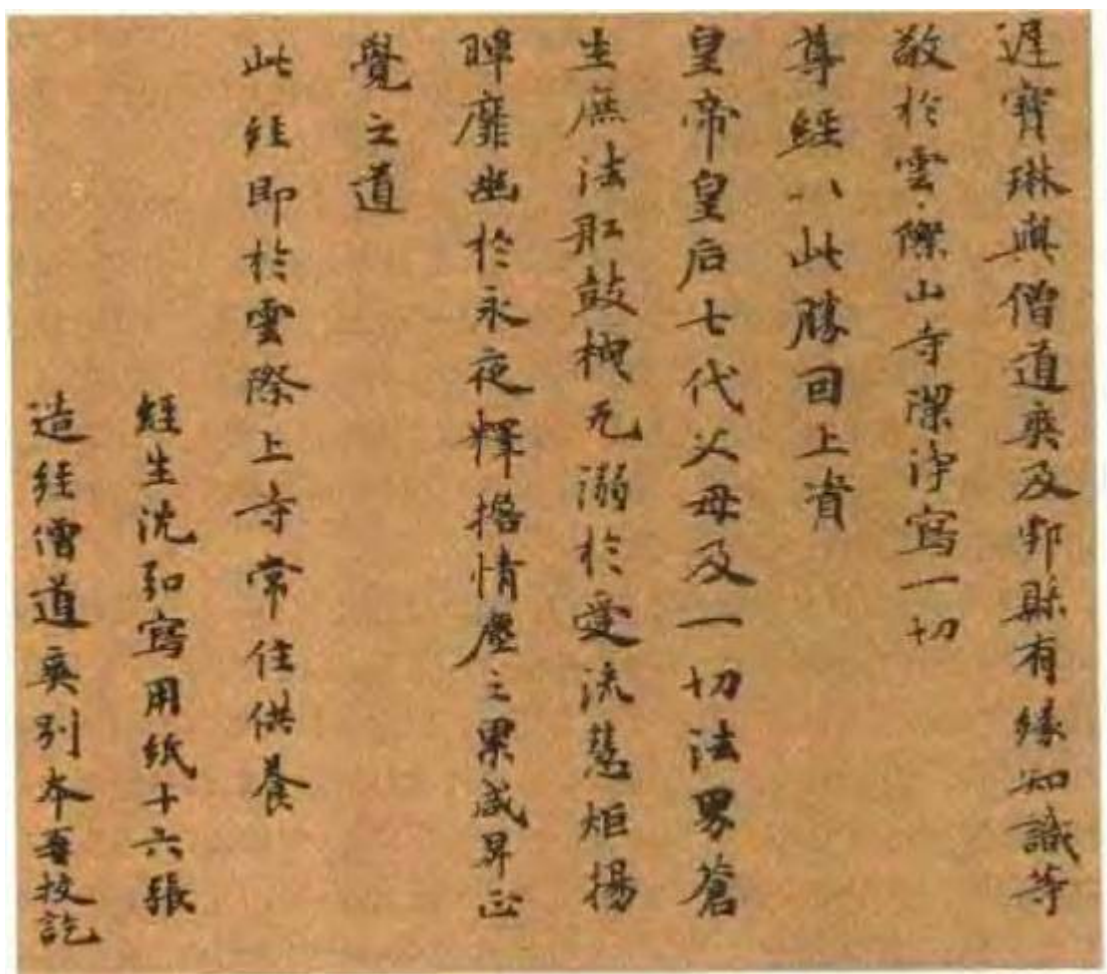 遲寶琳與僧道爽及鄠縣有緣知識等
敬於雲際山寺潔淨寫一切
尊經以此勝因上資
皇帝皇后七代父母及一切法界蒼
生庶法舩鼓枻无溺於愛流慧炬揚
暉靡幽於永夜釋擔情塵之累咸昇正
覺之道
此經即於雲際上寺常住供養
經生沈弘寫用紙十六張
造經僧道爽別本再校訖